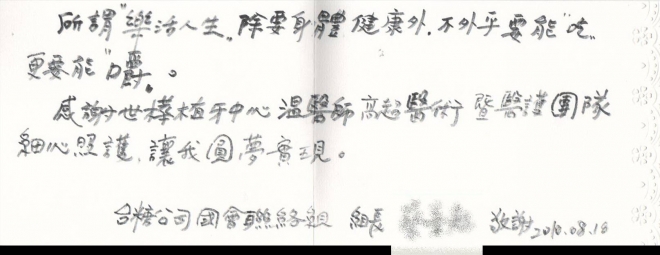 所謂"樂活人生"，除要身體健康外，不外乎要能"吃"
更要能"嚼"。
感謝世樺植牙中心溫醫師高超醫術暨醫護團隊
細心照護，讓我圓夢實現。
台糖公司國會聯絡組 組長 敬謝 2010.08.18